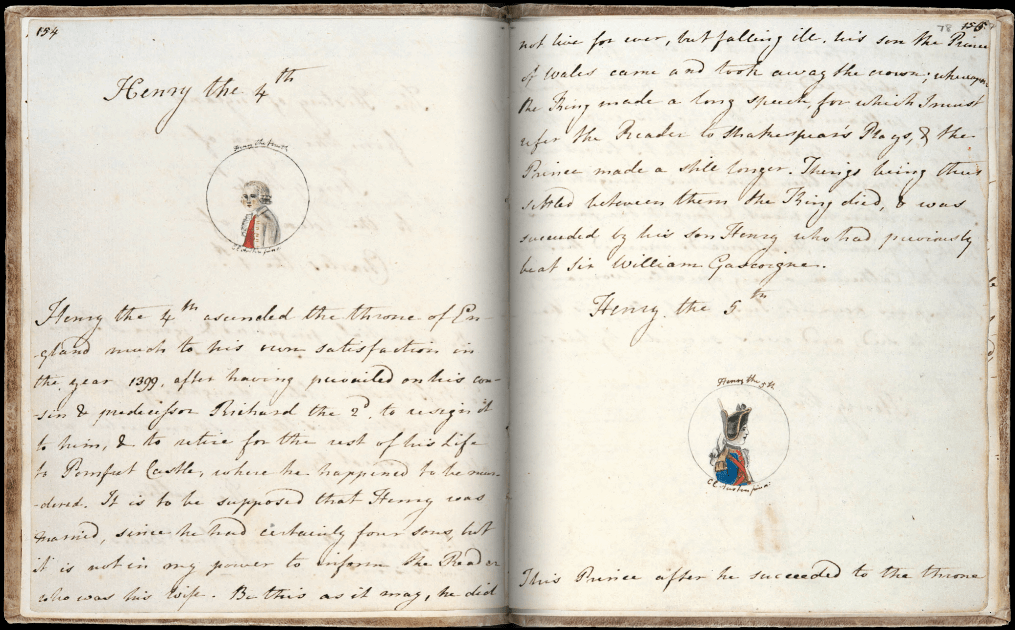 154
Henry the 4th
Henry the fourth
C E Austen pinx
Henry the 4th ascended the throne of En-
-gland much to his own satisfaction in
the year 1399, after having prevailed on his cou-
-sin & predecessor Richard the 2d, to resign it
to him, & to retire for the rest of his Life
to Pomfret Castle, where he happened to be mur-
-dered. It is to be supposed that Henry was
married, since he had certainly four sons, but
it is not in my power to inform the Reader
who was his Wife. Be this as it may, he did
155
78
not live for ever, but falling ill, his son the Prince
of Wales came and took away the crown; whereupon
the King made a long speech, for which I must
refer the Reader to Shakespear's Plays, & the
Prince made a still longer. Things being thus
settled between them the King died, & was
succeeded by his son Henry who had previously
beat Sir William Gascoigne.
Henry the 5th
Henry the 5th
C E Austen pinx
This Prince after he succeeded to the throne